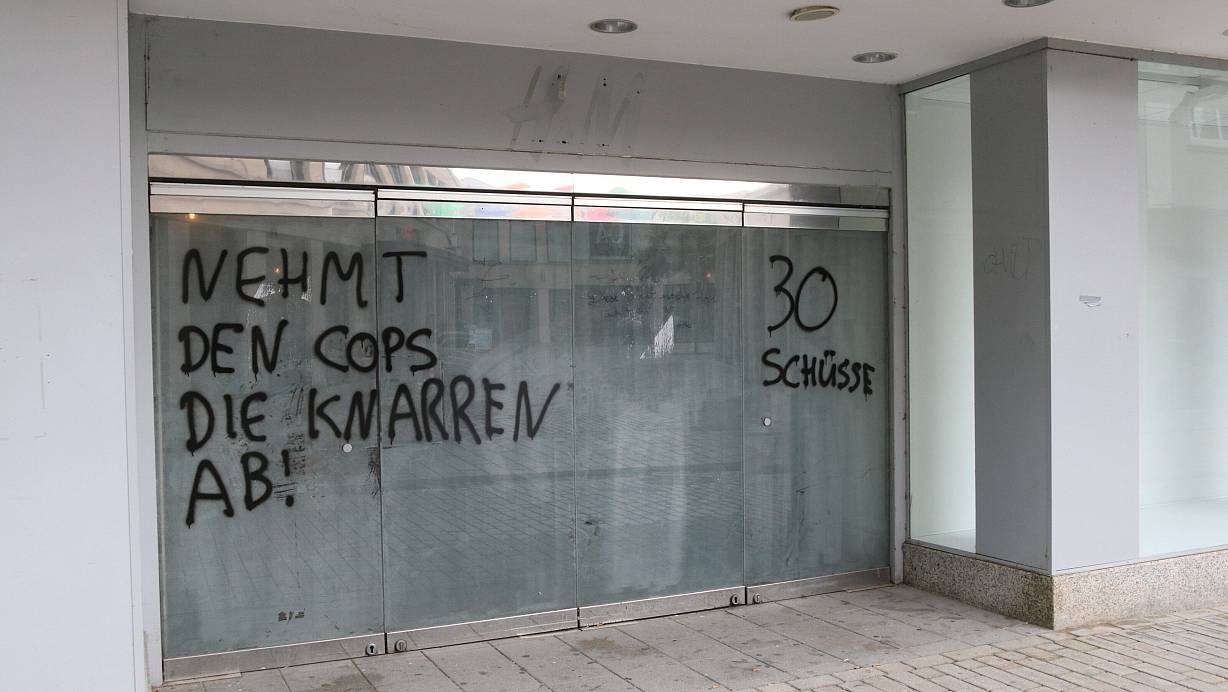 H&M
NEHMT
DEN COPS
DIE KNARREN
AB!
30
SCHÜSSE